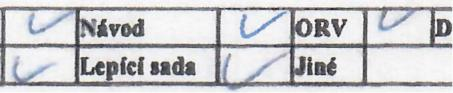 ✓ Návod ✓ ORV ✓ D
✓ Lepící sada ✓ Jiné